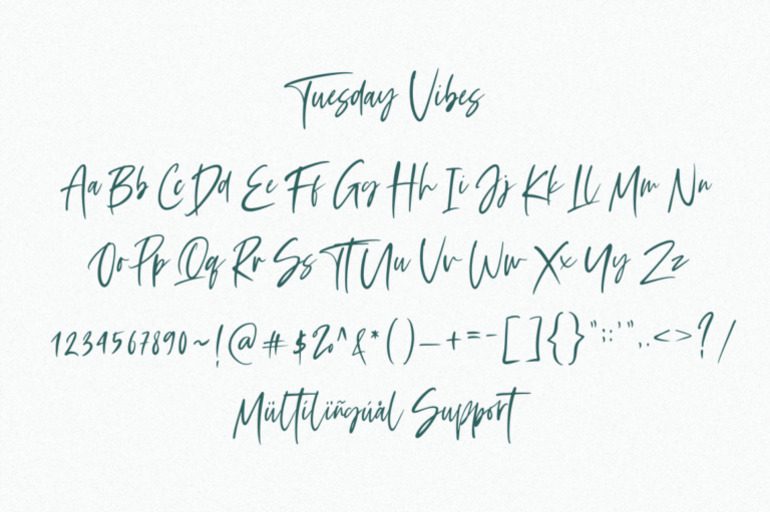 Tuesday Vibes
Aa Bb Cc Dd Ee Ff Gg Hh Ii Jj Kk Ll Mm Nn
Oo Pp Qq Rr Ss Tt Uu Vv Ww Xx Yy Zz
1234567890~!@#$%^&*()_+=-[]{}";:'",.<>?/
Mültílïñgúål Support